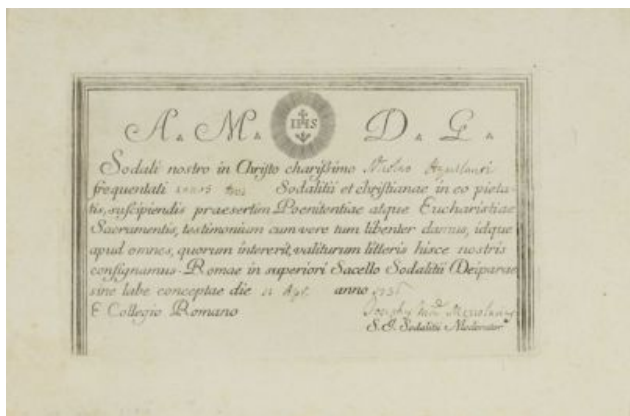 A. M. IHS D. G.
Sodali nostro in Christo charissimo
frequentati annos tres Sodalitii et christianae in eo pieta-
tis, suscipiendis praesertim Poenitentiae atque Eucharistiae
Sacramentis, testimonium cum vere tum libenter damus, idque
apud omnes, quorum intererit, valiturum litteris hisce nostris
consignamus. Romae in superiori Sacello Sodalitii Deiparae
sine labe conceptae die anno
E Collegio Romano
S. J. Sodalitii Moderator